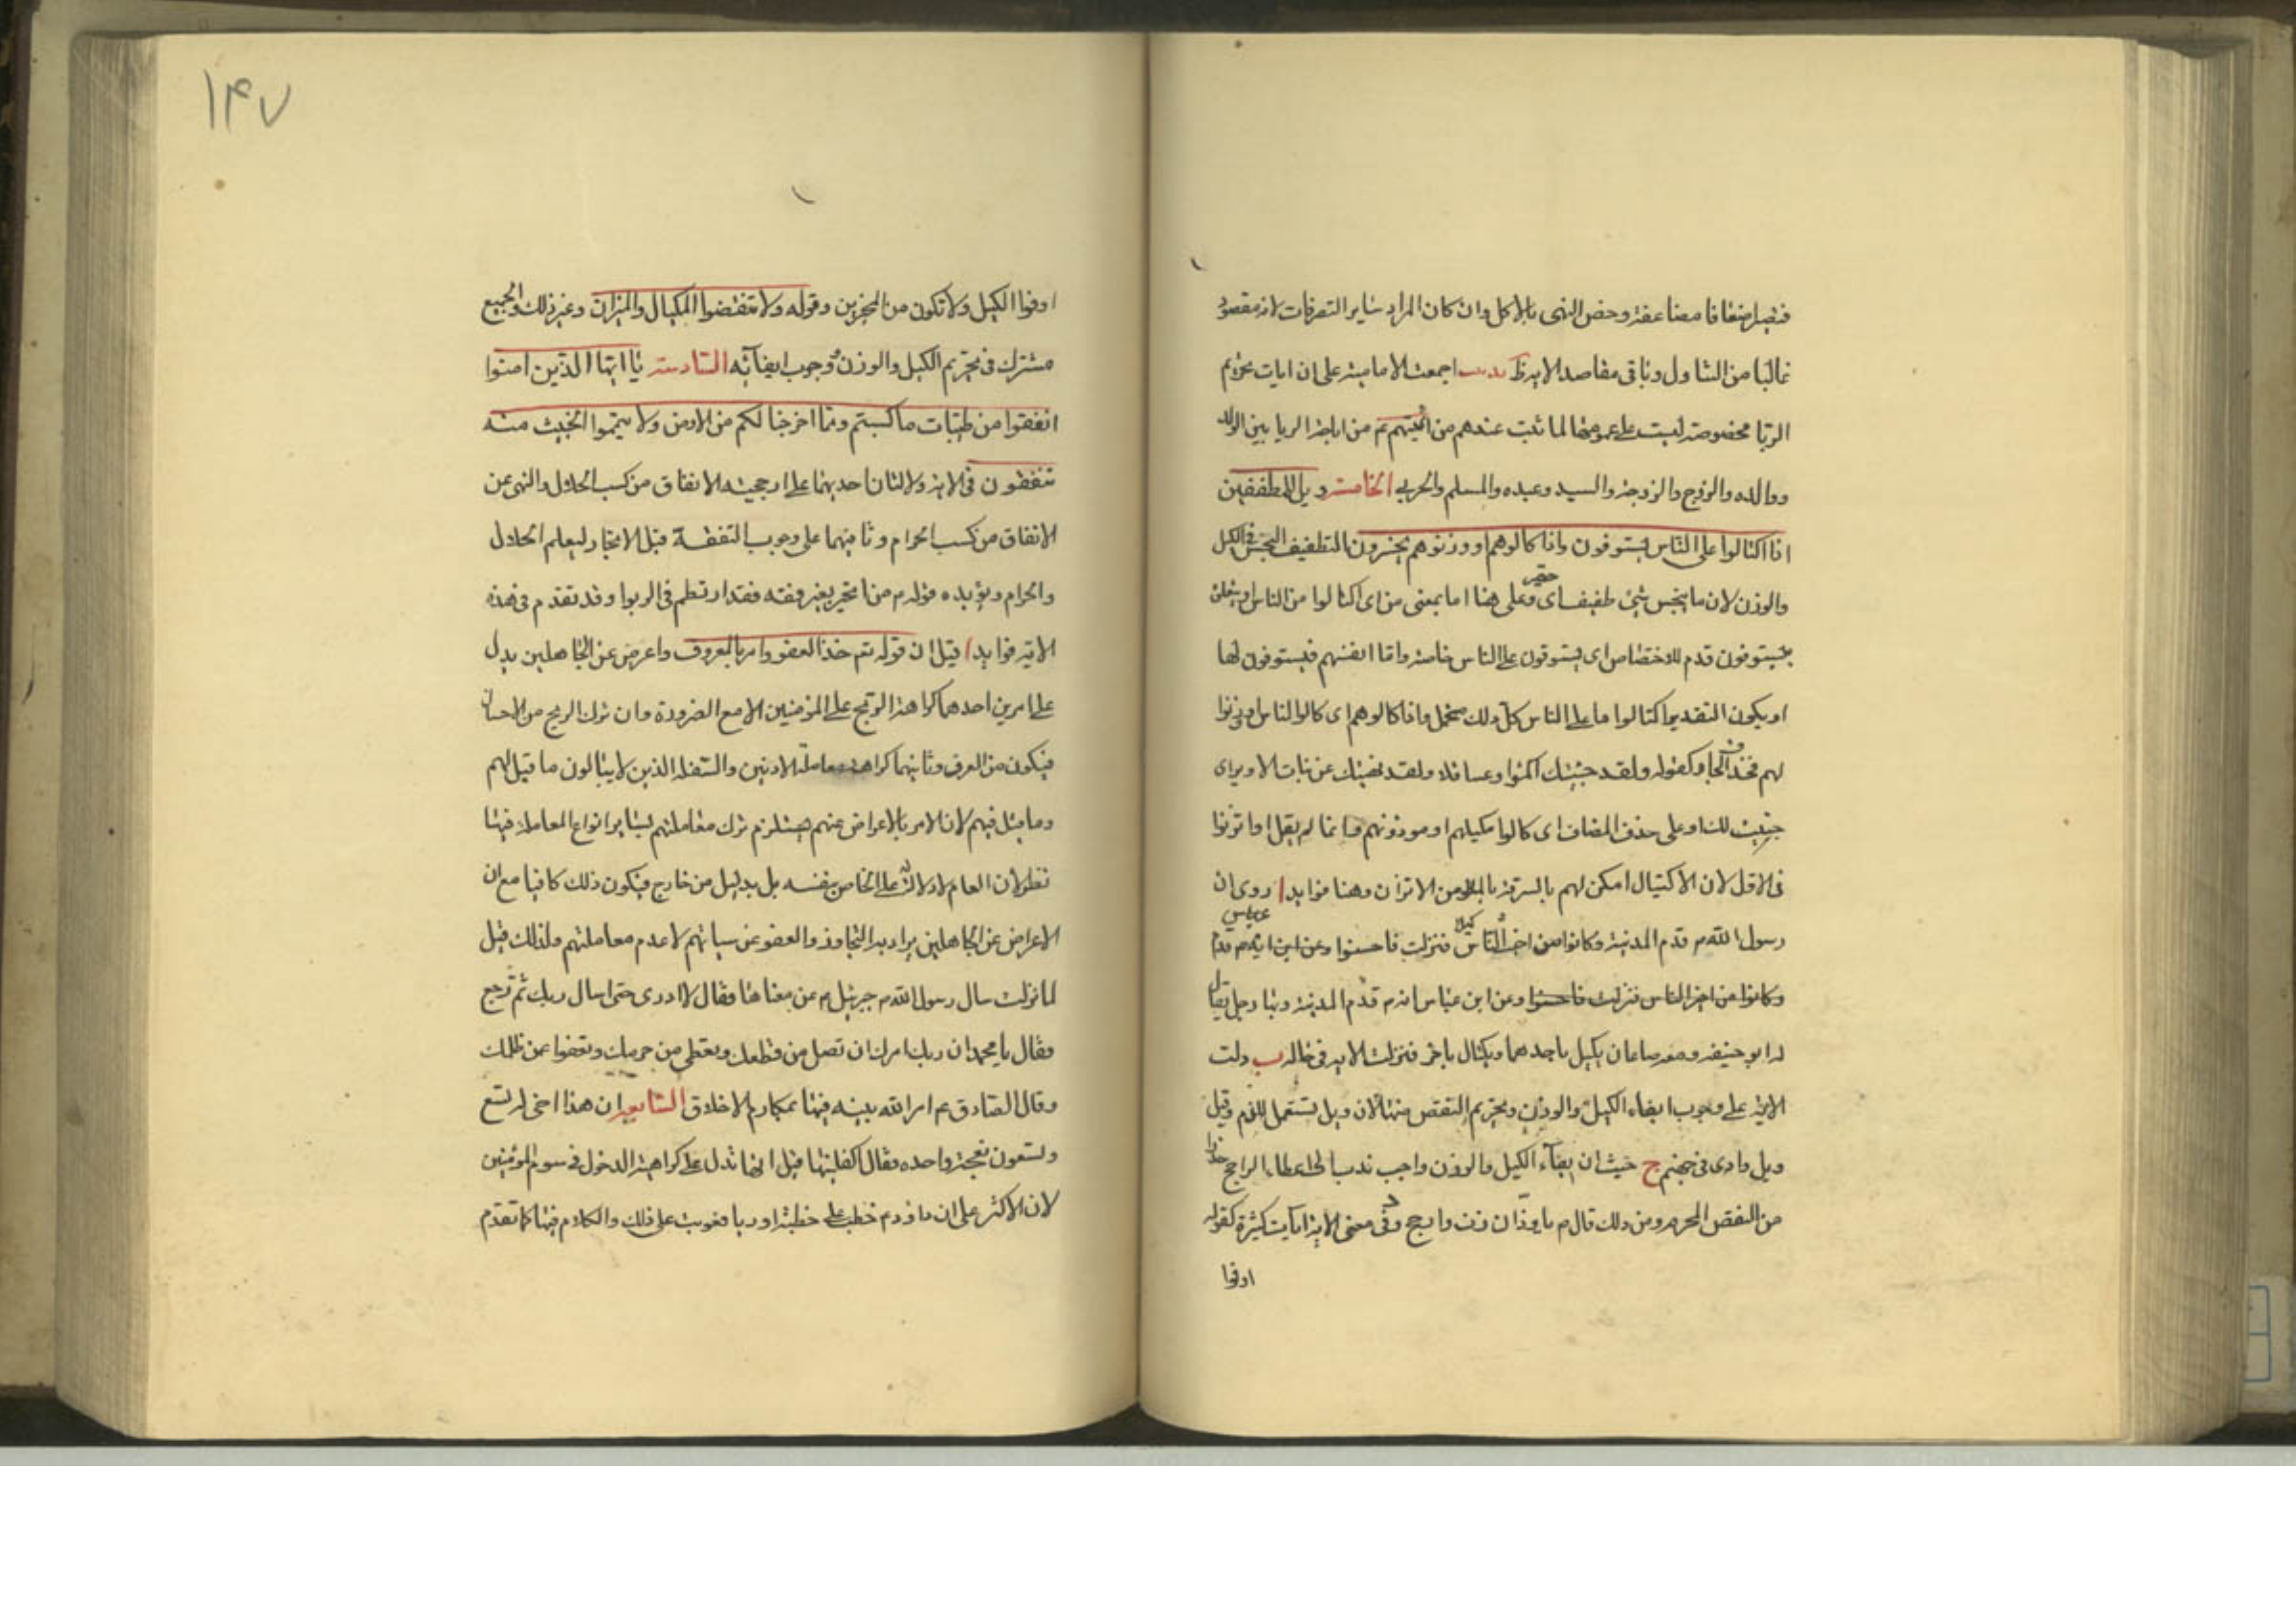 فتصير اضعافا مضاعفة وخص النهى بالاكل وان كان المراد ساير التصرفات لانه مقصود
غالبا من التناول وباقى مقاصد الاية ظ تذنيب اجمعت الامامية على ان ايات تحريم
الربا مخصوصة ليست على عمومها لما ثبت عندهم من ائمتهم ع من اباحة الربا بين الولد
ووالده والزوج والزوجة والسيد وعبده والمسلم والحربى الخامسة ويل للمطففين
اذا اكتالوا على الناس يستوفون واذا كالوهم او وزنوهم يخسرون التطفيف البخس فى الكيل
والوزن لان ما يبخس شئ طفيف اى حقير وعلى هنا اما بمعنى من اى اكتالوا من الناس او يتعلق
بيستوفون قدم للاختصاص اى يستوفون على الناس خاصة واما انفسهم فيستوفون لها
او يكون التقدير اكتالوا ما على الناس كل ذلك محتمل واذا كالوهم اى كالوا الناس او وزنوا
لهم فحذف الجار كقوله ولقد جنيتك اكمئوا وعساقلا ولقد نهيتك عن بنات الاوبر اى
جنيت لك او على حذف المضاف اى كالوا مكيلهم او موزونهم وانما لم يقل او اتزنوا
فى الاول لان الاكتيال امكن لهم بالسرقة من الاتزان وهنا فوايد ا روى ان
رسول الله ص قدم المدينة وكانوا من اخبث الناس كيلا فنزلت فاحسنوا وعن ابن عباس انه ص قدم
وكانوا من اخبر الناس فنزلت فاحسنوا وعن ابن عباس انه ص قدم المدينة وبها رجل يقال
له ابو جهينة ومعه صاعان يكيل باحدهما ويكتال باخر فنزلت الاية فى حاله ب دلت
الاية على وجوب ايفاء الكيل والوزن وتحريم النقص منهما لان ويل تستعمل للذم وقيل
ويل وادى فى جهنم ج حيث ان ايفاء الكيل والوزن واجب ندب الى اعطاء الراجح حذرا
من النقص المحرم ومن ذلك قال ص يا وزان زن وارجح د وفى معنى الاية ايات كثيرة كقوله
اوفوا
۱۴۷
اوفوا الكيل ولا تكون من المخسرين وقوله ولا تنقصوا المكيال والميزان وغير ذلك والجميع
مشترك فى تحريم الكيل والوزن ووجوب ايفائه السادسة يا ايها الذين امنوا
انفقوا من طيبات ما كسبتم ومما اخرجنا لكم من الارض ولا تيمموا الخبيث منه
تنفقون فى الاية دلالتان احديهما على ارجحية الانفاق من كسب الحلال والنهى عن
الانفاق من كسب الحرام وثانيهما على وجوب التفقه قبل الاتجار ليعلم الحلال
والحرام ويؤيده قوله ص من اتجر بغير فقه فقد ارتطم فى الربوا وقد تقدم فى هذه
الاية فوايد ا قيل ان قوله تع خذ العفو وامر بالمعروف واعرض عن الجاهلين يدل
على امرين احدهما كراهة الربح على المؤمنين الا مع الضرورة وان ترك الربح من الاحسان
فيكون من العرف وثانيهما كراهة معاملة الادنين والسفلة الذين لا يبالون ما قيل لهم
وما قيل فيهم لان الامر بالاعراض عنهم يستلزم ترك معاملتهم بساير انواع المعاملة فيها
نظر لان العام لا دلالة له على الخاص بنفسه بل بدليل من خارج فيكون ذلك كافيا مع ان
الاعراض عن الجاهلين يراد به التجاوز والعفو عن سيئاتهم لا عدم معاملتهم ولذلك قيل
لما نزلت سال رسول الله ص جبرئيل ع عن معناها فقال لا ادرى حتى اسال ربك ثم رجع
فقال يا محمد ان ربك امرك ان تصل من قطعك وتعطى من حرمك وتعفوا عمن ظلمك
وقال الصادق ع امر الله نبيه فيها بمكارم الاخلاق السابعة ان هذا اخى له تسع
وتسعون نعجة واحده فقال اكفلنيها قيل انها تدل على كراهية الدخول فى سوم المؤمنين
لان الاكثر على ان داود ع خطب على خطبة اوريا فعوتب على ذلك والكلام فيها كما تقدم